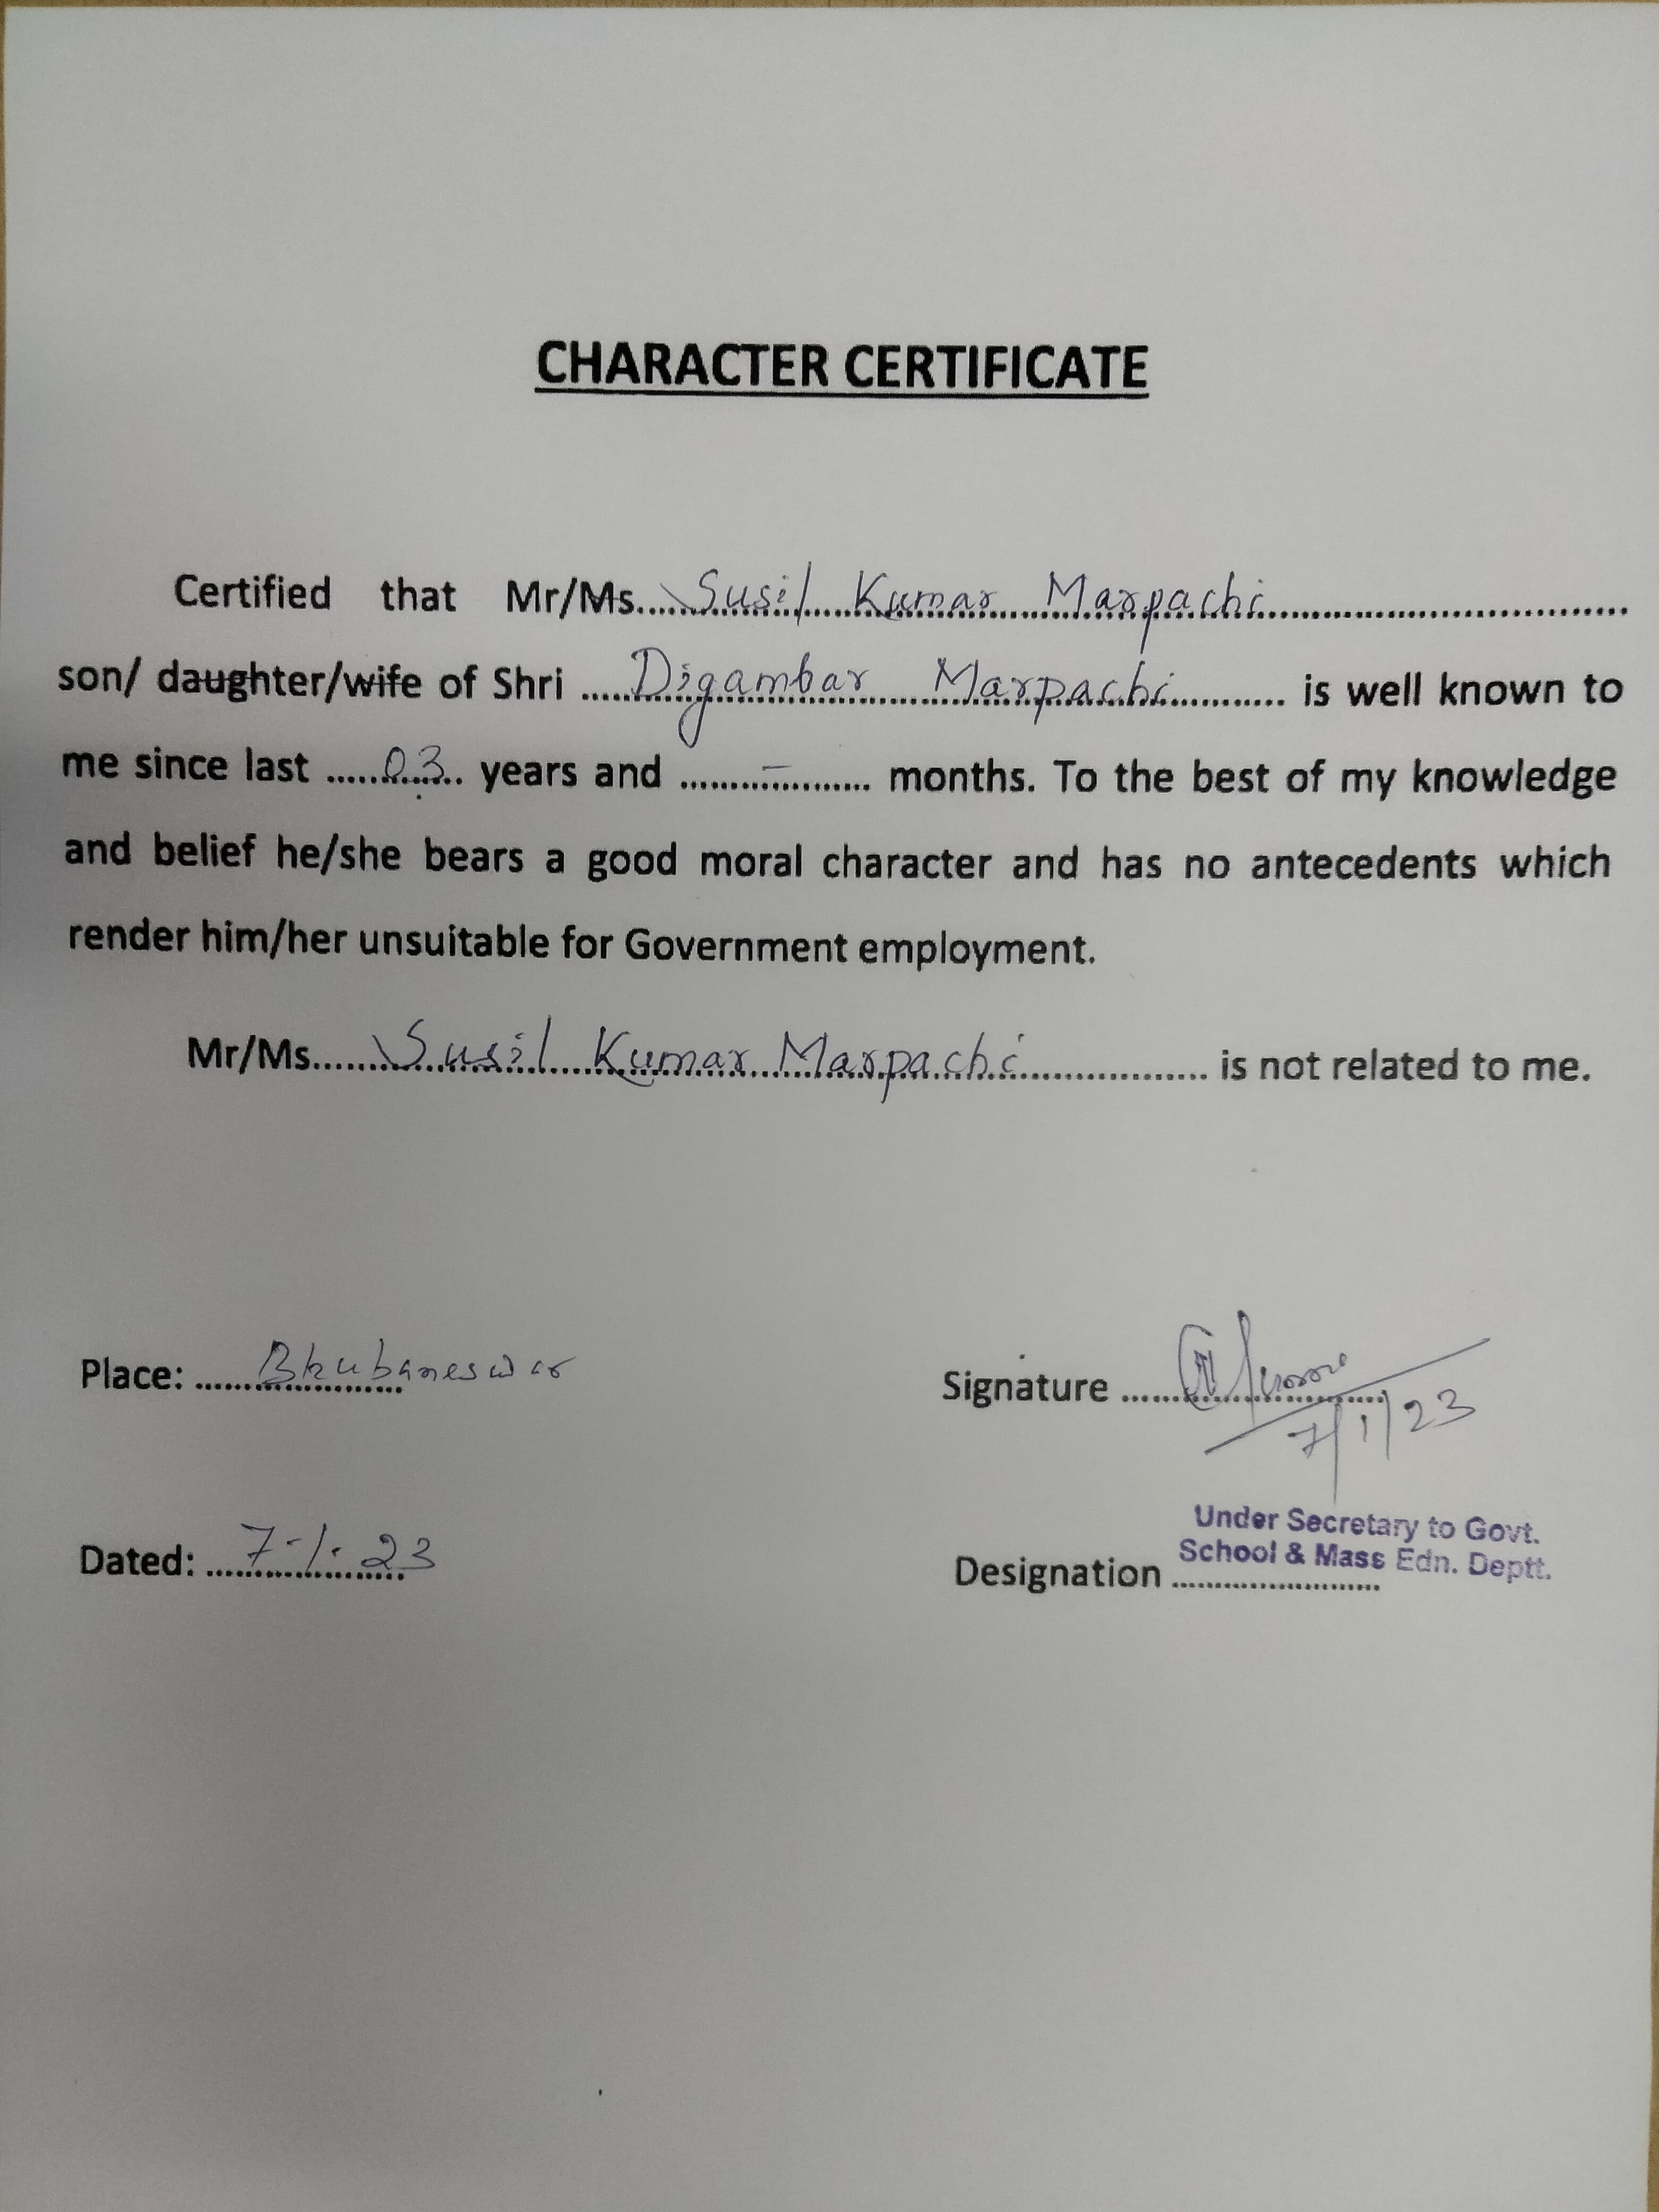 CHARACTER CERTIFICATE
Certified that Mr/Ms..... Susil Kumar Marpachi ..............................
son/ daughter/wife of Shri ..... Digambar Marpachi ........... is well known to
me since last ...... 03 .. years and ........ – ......... months. To the best of my knowledge
and belief he/she bears a good moral character and has no antecedents which
render him/her unsuitable for Government employment.
Mr/Ms...... Susil Kumar Marpachi ................... is not related to me.
Place: ...... Bhubaneswar
Signature ......
7/1/23
Dated: .... 7-1-23
Under Secretary to Govt.
School & Mass Edn. Deptt.
Designation ........................